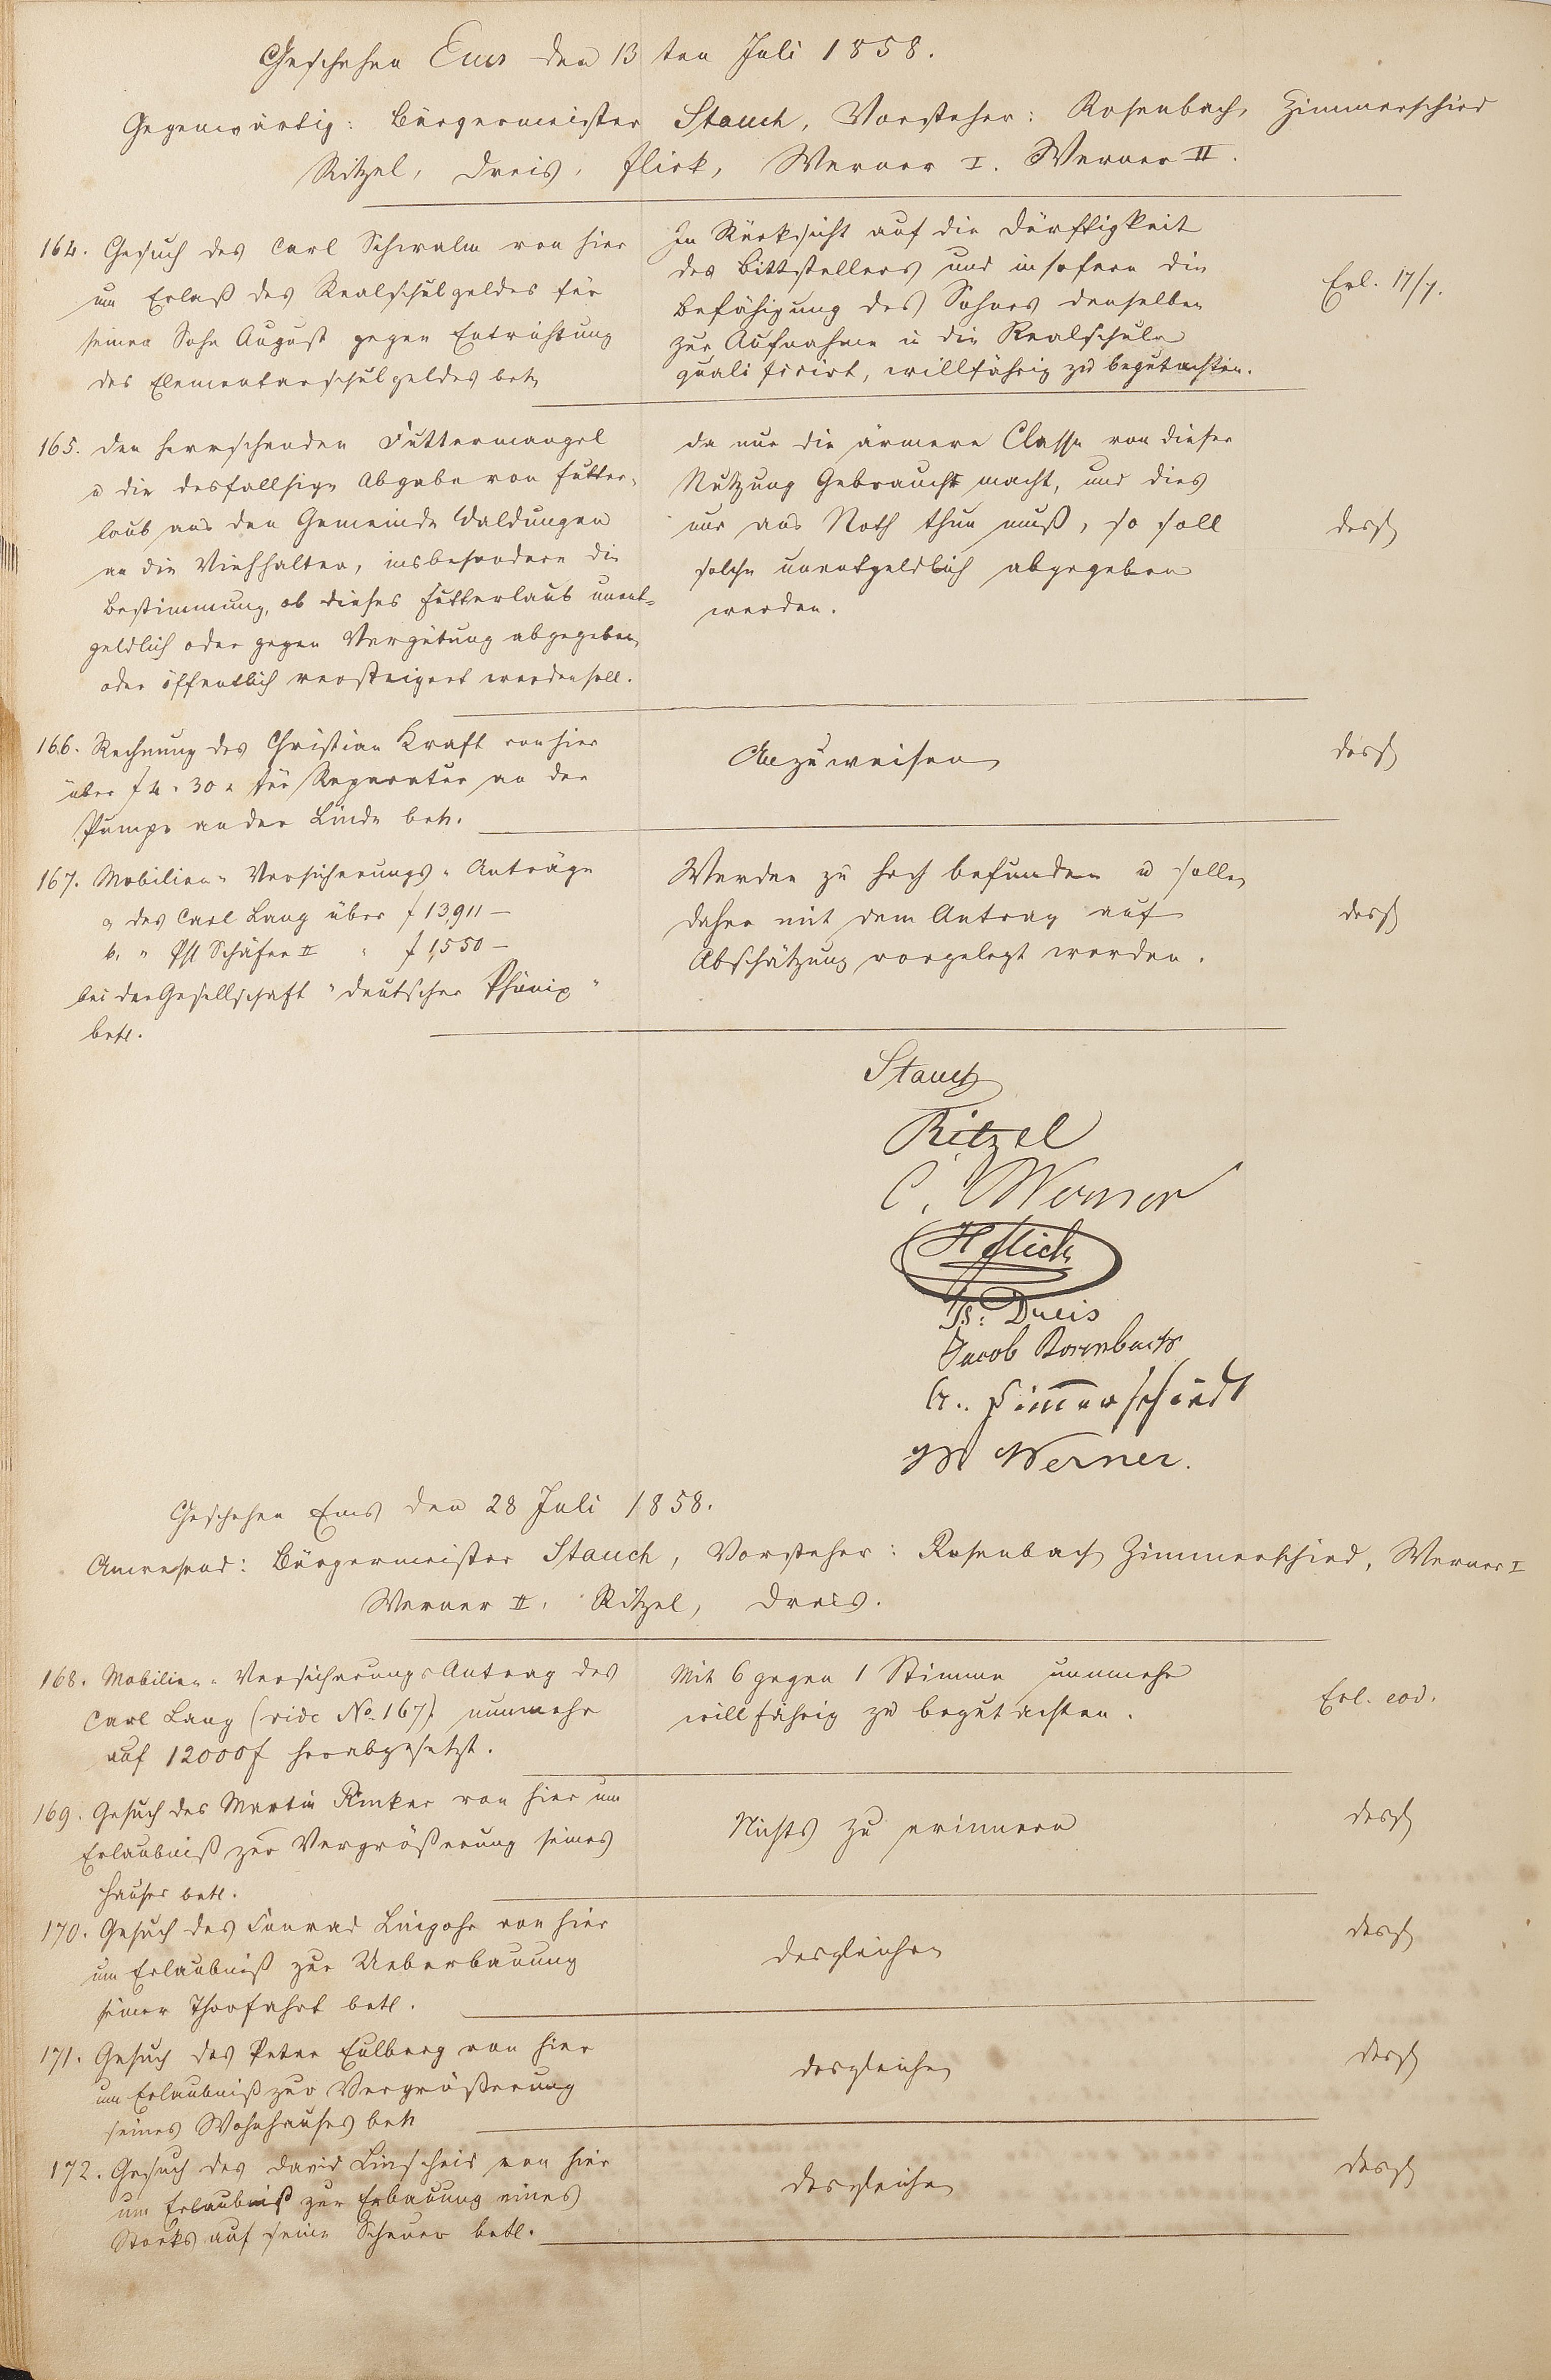 Geschehen Ems den 13ten Juli 1858.
Gegenwärtig: Bürgermeister Stauch, Vorsteher: Rosenbach, Zimmerschied
Ritzel, Dreis, Flick, Werner I. Werner II.
164. Gesuch des Carl Schwalm von hier
um Erlaß des Realschulgeldes für
seinen Sohn August gegen Entrichtung
des Elementarschulgeldes betr.
In Rücksicht auf die Dürftigkeit
des Bittstellers und insofern die
Befähigung des Sohnes denselben
zur Aufnahme in die Realschule
qualificirt, willfährig zu begutachten.
Erl. 17/7.
165. Den herrschenden Futtermangel
u die desfallsige Abgabe von Futter-
laub aus den Gemeinde Waldungen
an die Viehhalter, insbesondere die
Bestimmung, ob dieses Futterlaub unent-
geldlich oder gegen Vergütung abgegeben,
oder öffentlich versteigert werden soll.
Da nur die ärmere Classe von dieser
Nutzung Gebrauch macht, und dies
nur aus Noth thun muß, so soll
solche unentgeldlich abgegeben
werden.
desgl
166. Rechnung des Christian Kraft von hier
über f 4. 30 x für Reparatur an der
Pumpe an der Linde betr.
Anzuweisen
desgl
167. Mobilien-Versicherungs-Anträge
a, des Carl Lang über f 13,911 —
b. " Phl Schäfer II " f 1,550 —
bei der Gesellschaft "deutscher Phönix"
betr.
Werden zu hoch befunden u sollen
daher mit dem Antrag auf
Abschätzung vorgelegt werden.
desgl
Stauch
Ritzel
C. Werner
H Flick
Dreis
Jacob Rosenbach
Zimmerschied
W Werner.
Geschehen Ems den 28 Juli 1858.
Anwesend: Bürgermeister Stauch, Vorsteher: Rosenbach Zimmerschied, Werner I
Werner II, Ritzel, Dreis.
168. Mobilien-Versicherungs-Antrag des
Carl Lang (vide No. 167) nunmehr
auf 12000 f herabgesetzt.
Mit 6 gegen 1 Stimme nunmehr
willfährig zu begutachten.
Erl. eod.
169. Gesuch des Martin Rinker von hier um
Erlaubniß zur Vergrößerung seines
Hauses betr.
Nichts zu erinnern
desgl
170. Gesuch des Conrad Linpohr von hier
um Erlaubniß zur Ueberbauung
seiner Thorfahrt betr.
desgleichen
desgl
171. Gesuch des Peter Eulberg von hier
um Erlaubniß zur Vergrößerung
seines Wohnhauses betr
desgleichen
desgl
172. Gesuch des David Linscheid von hier
um Erlaubniß zur Erbauung eines
Stocks auf seine Scheuer betr.
desgleichen
desgl